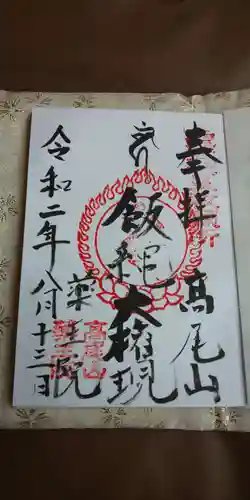 奉拝 高尾山
飯縄大権現
薬王院
令和二年八月十三日